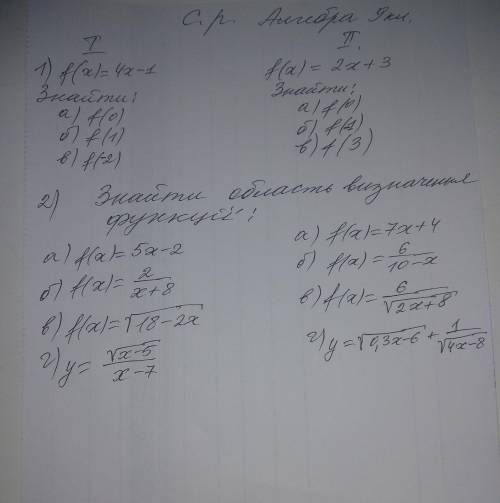 С.р. Алгебра 9 кл.
I
1) f(x)=4x-1
Знайти:
а) f(0)
б) f(1)
в) f(-2)
II.
f(x)=2x+3
Знайти:
а) f(0)
б) f(1)
в) f(3)
2) Знайти область визначення
функції:
а) f(x)=5x-2
б) f(x)=2/(x+8)
в) f(x)=√(18-2x)
г) y=√(x-5)/(x-7)
а) f(x)=7x+4
б) f(x)=6/(10-x)
в) f(x)=6/√(2x+8)
г) y=√(0,3x-6)+1/√(4x-8)